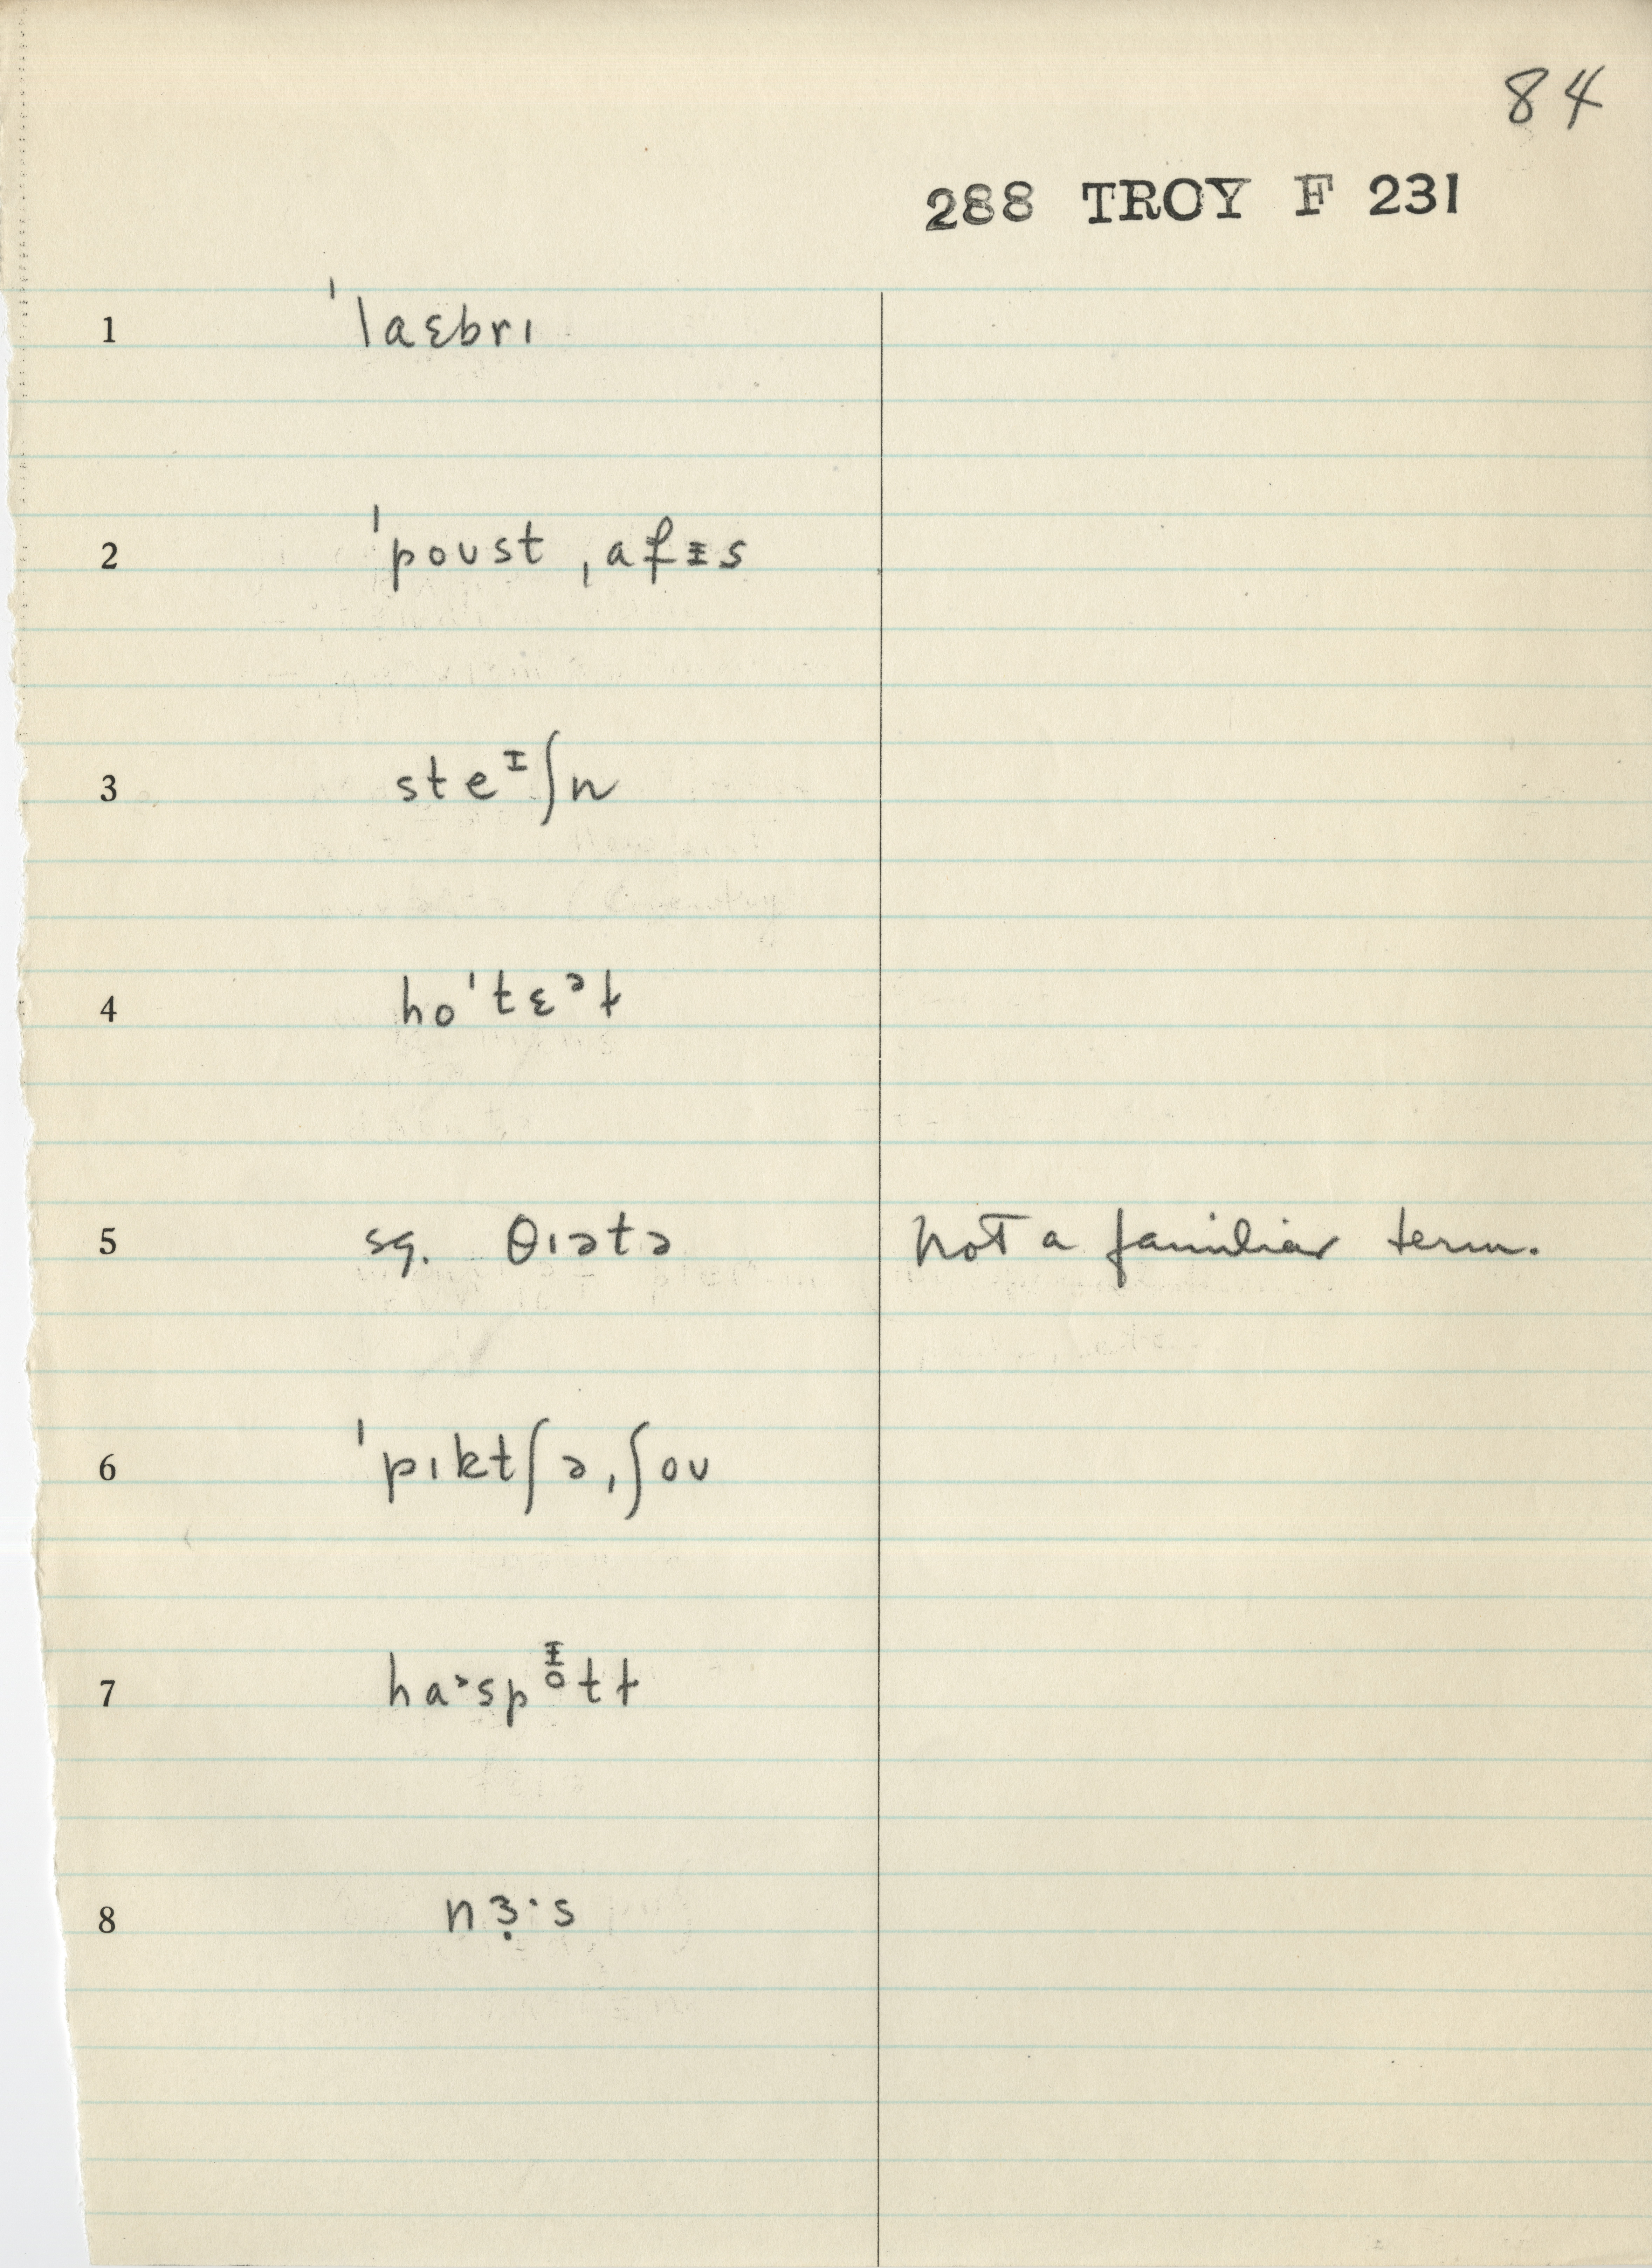 84
288 TROY F 231
1 ˈlaɛbrɪ
2 ˈpoʊst ˌafᵻs
3 steᶦʃn
4 hoˈtɛᵊɫ
5 sg. θɪətə not a familiar term.
6 ˈpɪktʃəˌʃoʊ
7 haˑspᵻ̥tɫ
8 nɜ̣ˑs